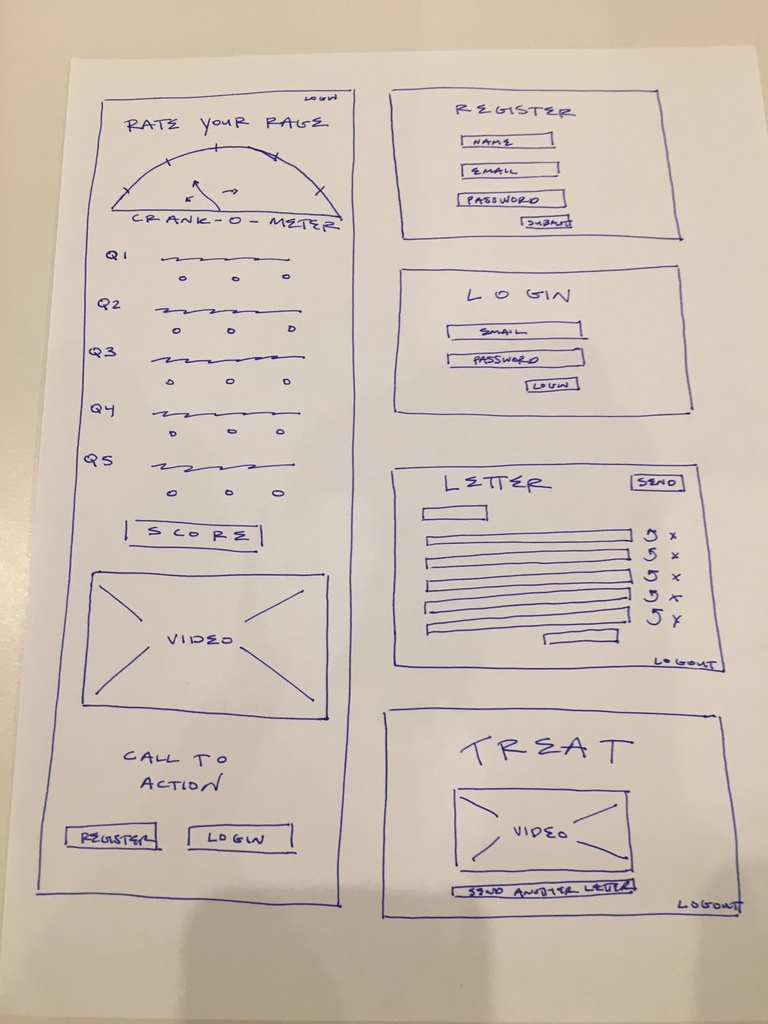 LOGIN
RATE YOUR RAGE
CRANK-O-METER
Q1
Q2
Q3
Q4
Q5
SCORE
VIDEO
CALL TO
ACTION
REGISTER
LOGIN
REGISTER
NAME
EMAIL
PASSWORD
SUBMIT
LOGIN
EMAIL
PASSWORD
LOGIN
LETTER
SEND
X
X
X
X
X
LOGOUT
TREAT
VIDEO
SEND ANOTHER LETTER
LOGOUT